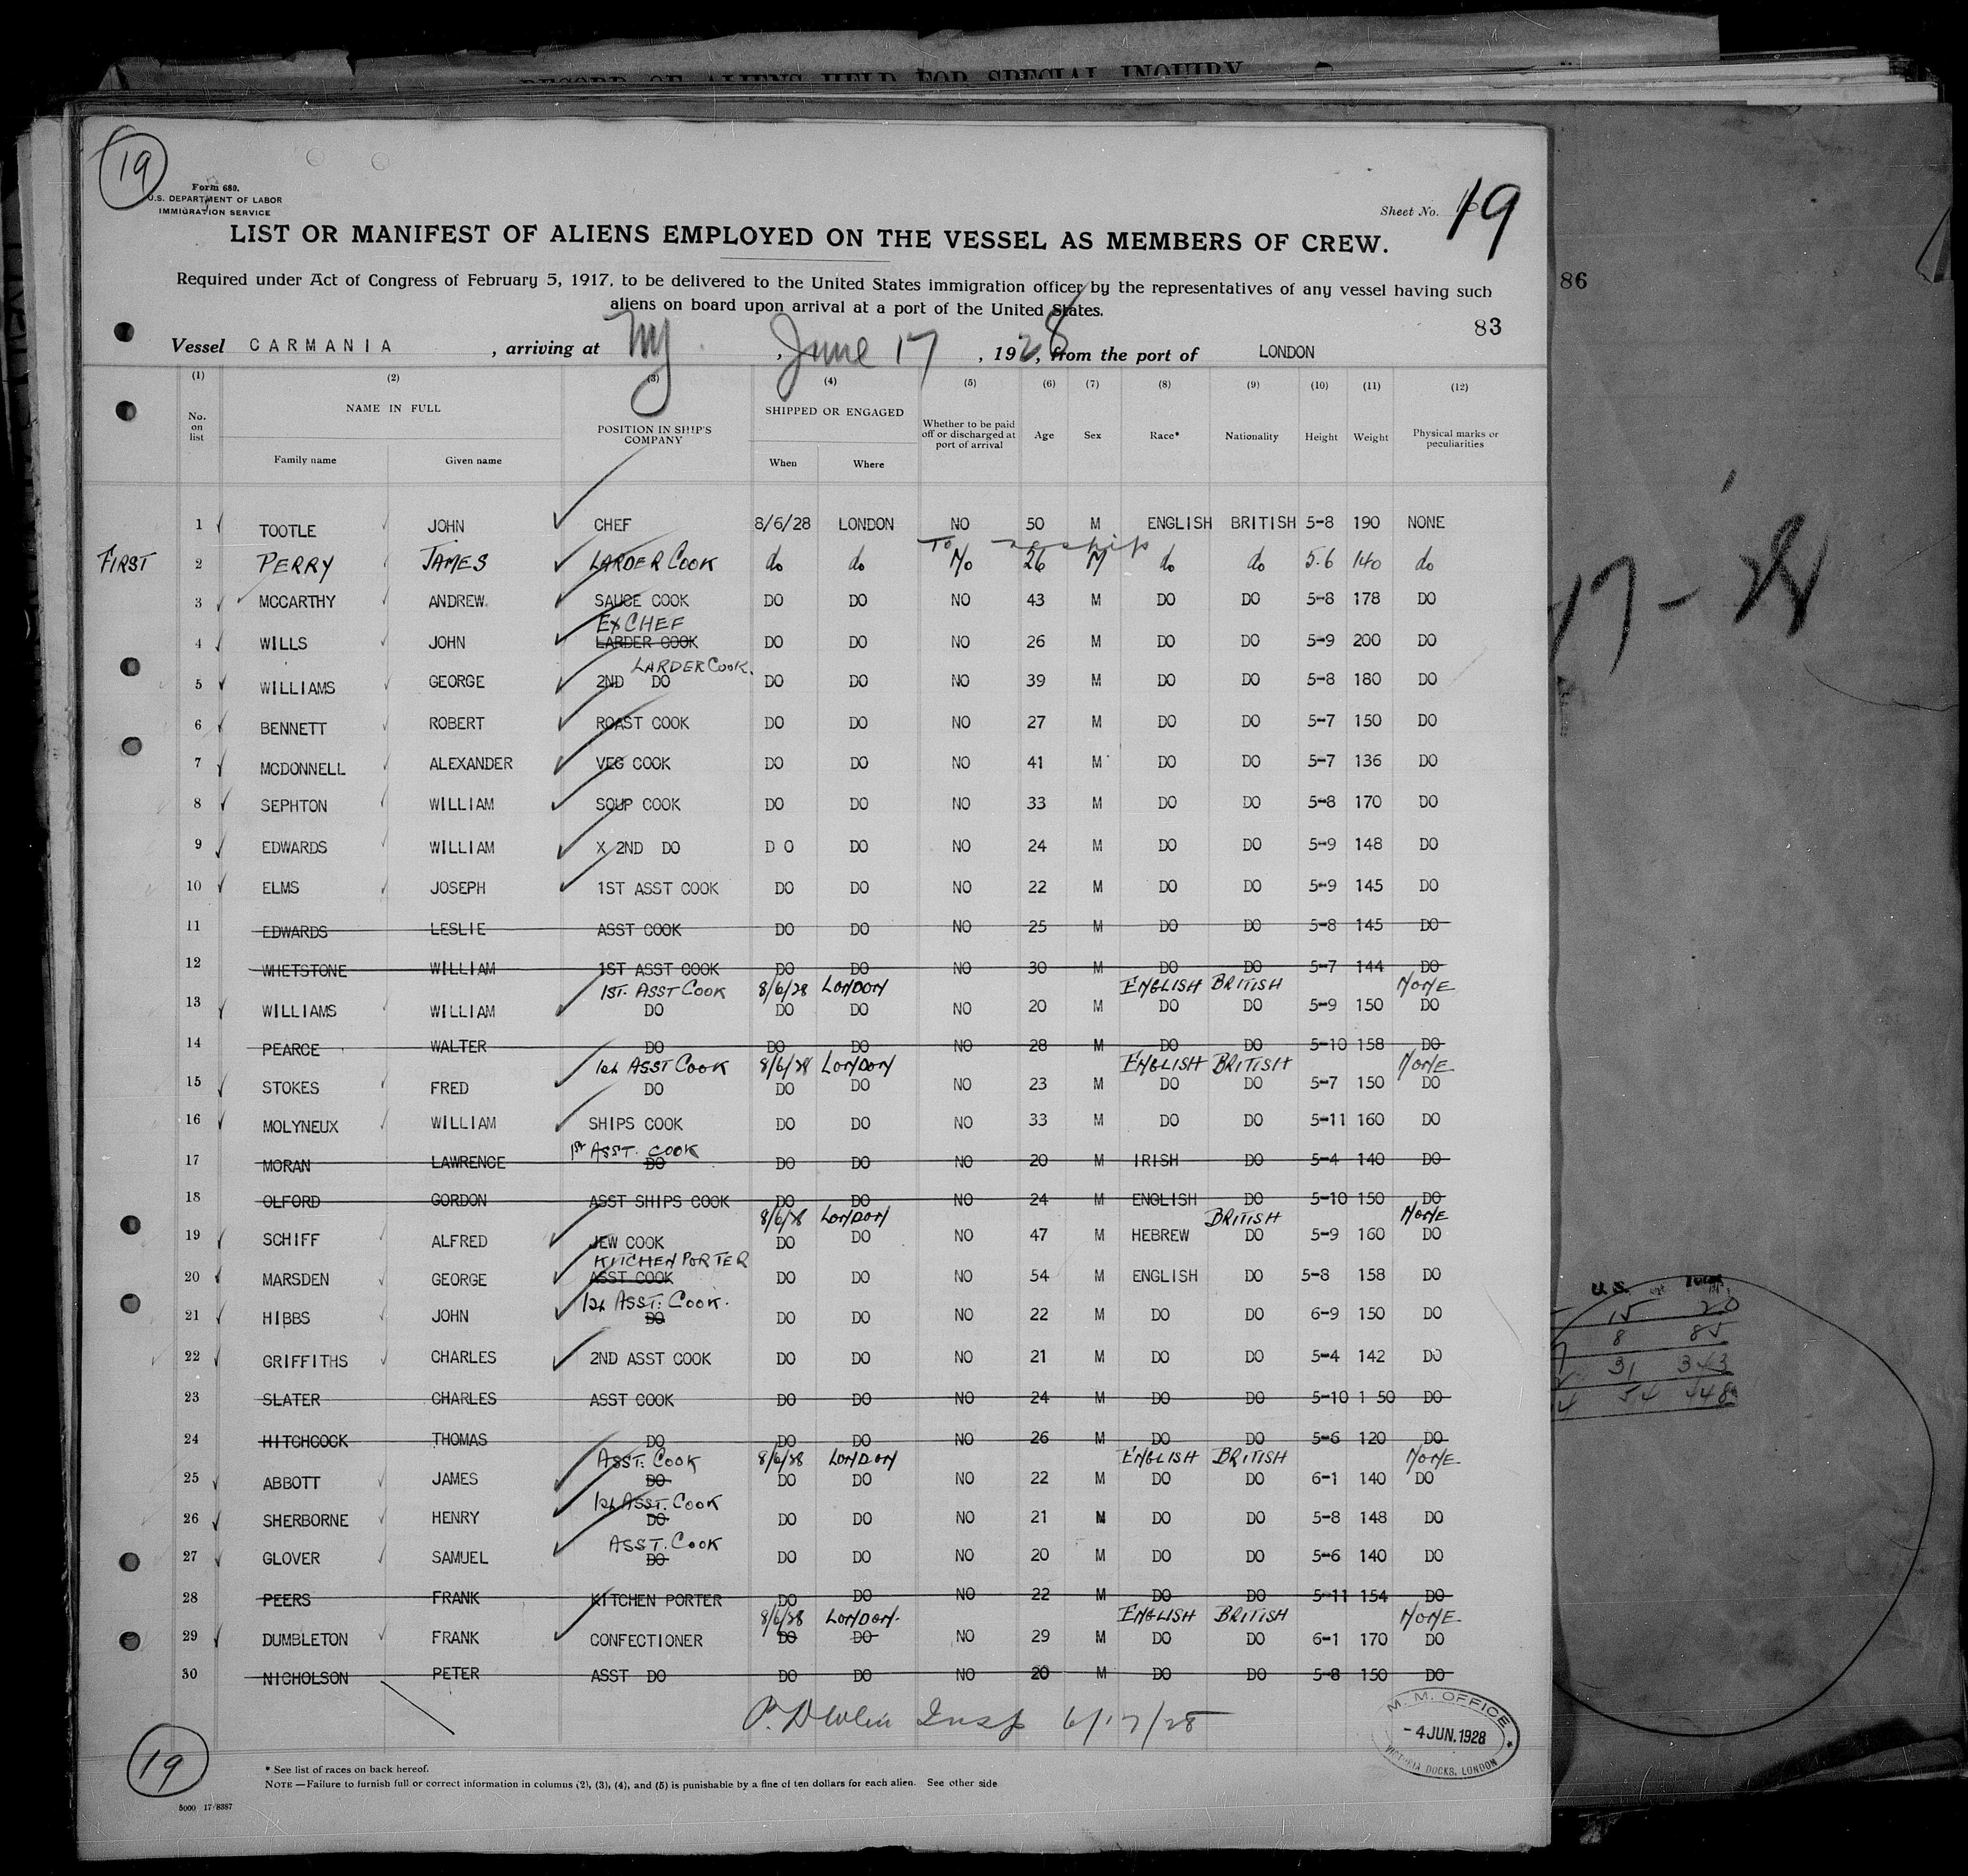 RECORD OF ALIENS HELD FOR SPECIAL INQUIRY
19
Form 680.
U.S. DEPARTMENT OF LABOR
IMMIGRATION SERVICE
Sheet No. 19
LIST OR MANIFEST OF ALIENS EMPLOYED ON THE VESSEL AS MEMBERS OF CREW.
Required under Act of Congress of February 5, 1917, to be delivered to the United States immigration officer by the representatives of any vessel having such
aliens on board upon arrival at a port of the United States.
86
83
Vessel CARMANIA , arriving at NY , June 17 , 1928, from the port of LONDON
(1) (2) (3) (4) (5) (6) (7) (8) (9) (10) (11) (12)
No. on list NAME IN FULL POSITION IN SHIP'S COMPANY SHIPPED OR ENGAGED Whether to be paid off or discharged at port of arrival Age Sex Race* Nationality Height Weight Physical marks or peculiarities
Family name Given name When Where
1 TOOTLE JOHN CHEF 8/6/28 LONDON NO 50 M ENGLISH BRITISH 5-8 190 NONE
To reship
FIRST 2 PERRY JAMES LARDER COOK do do No 26 M do do 5.6 140 do
3 MCCARTHY ANDREW. SAUCE COOK DO DO NO 43 M DO DO 5-8 178 DO
EX CHEF
4 WILLS JOHN LARDER COOK DO DO NO 26 M DO DO 5-9 200 DO
LARDER COOK.
5 WILLIAMS GEORGE 2ND DO DO DO NO 39 M DO DO 5-8 180 DO
6 BENNETT ROBERT ROAST COOK DO DO NO 27 M DO DO 5-7 150 DO
7 MCDONNELL ALEXANDER VEG COOK DO DO NO 41 M DO DO 5-7 136 DO
8 SEPHTON WILLIAM SOUP COOK DO DO NO 33 M DO DO 5-8 170 DO
9 EDWARDS WILLIAM X 2ND DO D O DO NO 24 M DO DO 5-9 148 DO
10 ELMS JOSEPH 1ST ASST COOK DO DO NO 22 M DO DO 5-9 145 DO
11 EDWARDS LESLIE ASST COOK DO DO NO 25 M DO DO 5-8 145 DO
12 WHETSTONE WILLIAM 1ST ASST COOK DO DO NO 30 M DO DO 5-7 144 DO
1ST. ASST COOK 8/6/28 LONDON ENGLISH BRITISH NONE
13 WILLIAMS WILLIAM DO DO DO NO 20 M DO DO 5-9 150 DO
14 PEARCE WALTER DO DO DO NO 28 M DO DO 5-10 158 DO
1st ASST COOK 8/6/28 LONDON ENGLISH BRITISH NONE
15 STOKES FRED DO DO DO NO 23 M DO DO 5-7 150 DO
16 MOLYNEUX WILLIAM SHIPS COOK DO DO NO 33 M DO DO 5-11 160 DO
1st ASST. COOK
17 MORAN LAWRENCE DO DO DO NO 20 M IRISH DO 5-4 140 DO
18 OLFORD GORDON ASST SHIPS COOK DO DO NO 24 M ENGLISH DO 5-10 150 DO
8/6/28 LONDON BRITISH NONE
19 SCHIFF ALFRED JEW COOK DO DO NO 47 M HEBREW DO 5-9 160 DO
KITCHEN PORTER
20 MARSDEN GEORGE ASST COOK DO DO NO 54 M ENGLISH DO 5-8 158 DO
1st ASST. COOK.
21 HIBBS JOHN DO DO DO NO 22 M DO DO 6-9 150 DO
22 GRIFFITHS CHARLES 2ND ASST COOK DO DO NO 21 M DO DO 5-4 142 DO
23 SLATER CHARLES ASST COOK DO DO NO 24 M DO DO 5-10 1 50 DO
24 HITCHCOCK THOMAS DO DO DO NO 26 M DO DO 5-6 120 DO
ASST. COOK 8/6/28 LONDON ENGLISH BRITISH NONE
25 ABBOTT JAMES DO DO DO NO 22 M DO DO 6-1 140 DO
1st ASST. COOK
26 SHERBORNE HENRY DO DO DO NO 21 M DO DO 5-8 148 DO
ASST. COOK
27 GLOVER SAMUEL DO DO DO NO 20 M DO DO 5-6 140 DO
28 PEERS FRANK KITCHEN PORTER DO DO NO 22 M DO DO 5-11 154 DO
8/6/28 LONDON. ENGLISH BRITISH NONE
29 DUMBLETON FRANK CONFECTIONER DO DO NO 29 M DO DO 6-1 170 DO
30 NICHOLSON PETER ASST DO DO DO NO 20 M DO DO 5-8 150 DO
Insp 6/17/28
M. M. OFFICE
-4 JUN. 1928
VICTORIA DOCKS, LONDON
19
* See list of races on back hereof.
NOTE—Failure to furnish full or correct information in columns (2), (3), (4), and (5) is punishable by a fine of ten dollars for each alien. See other side
5000 17/8387
17-28
U.S. Total
15 20
8 85
31 343
54 448